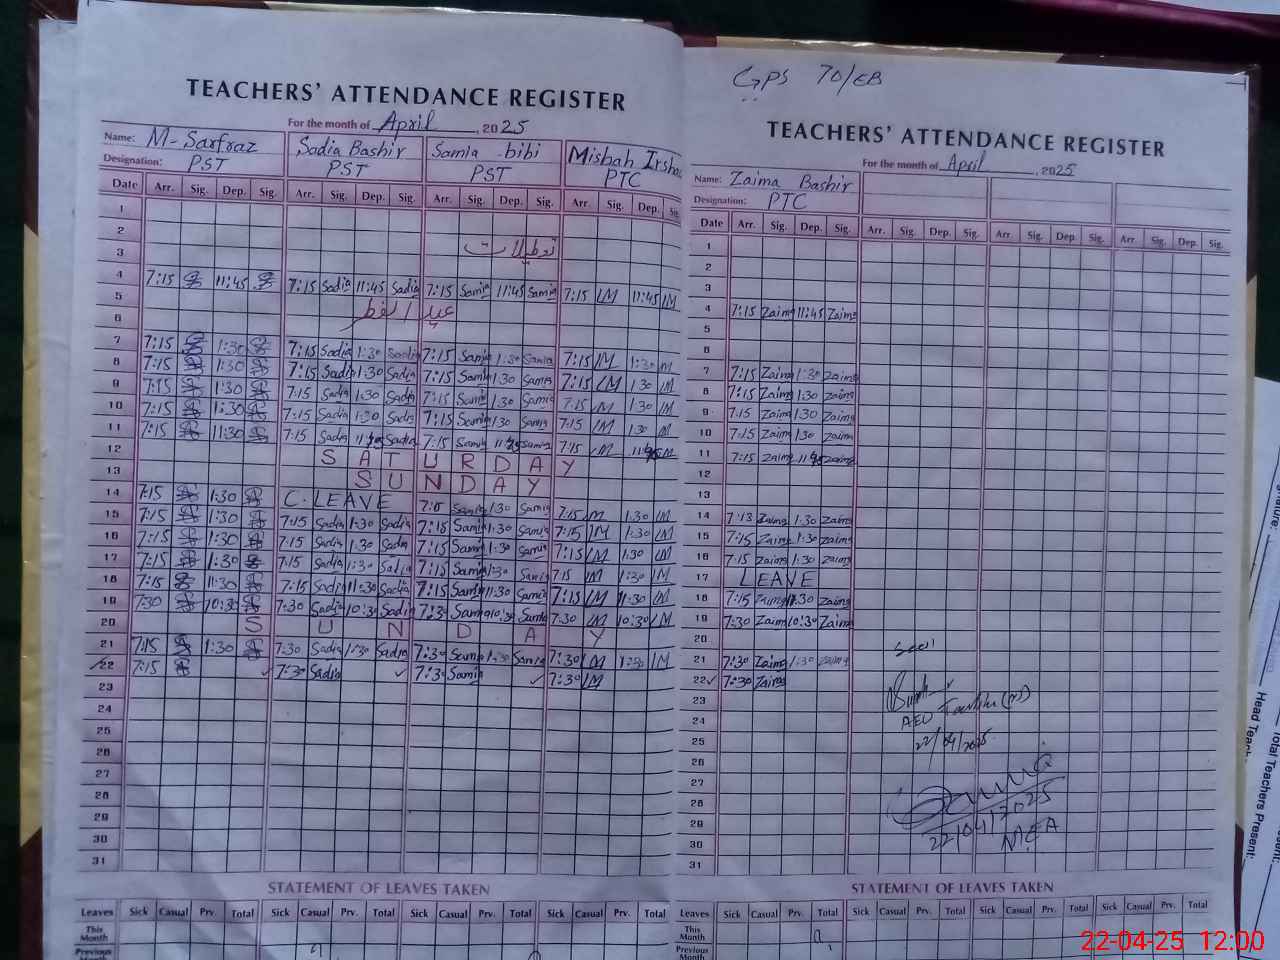 TEACHERS' ATTENDANCE REGISTER
For the month of April, 2025
Name: M-Sarfraz Sadia Bashir Samia bibi Misbah Irsha
Designation: PST PST PST PTC
Date Arr. Sig. Dep. Sig. Arr. Sig. Dep. Sig. Arr. Sig. Dep. Sig. Arr. Sig. Dep. Sig.
1
2
3 تعطیلات
4 7:15 11:45 7:15 Sadia 11:45 Sadia 7:15 Samia 11:45 Samia 7:15 IM 11:45 IM
5 عید الفطر
6
7 7:15 1:30 7:15 Sadia 1:30 Sadia 7:15 Samia 1:30 Samia 7:15 IM 1:30 M
8 7:15 1:30 7:15 Sadia 1:30 Sadia 7:15 Samia 1:30 Samia 7:15 IM 1:30 IM
9 7:15 1:30 7:15 Sadia 1:30 Sadia 7:15 Samia 1:30 Samia 7:15 IM 1:30 IM
10 7:15 1:30 7:15 Sadia 1:30 Sadia 7:15 Samia 1:30 Samia 7:15 IM 1:30 IM
11 7:15 11:30 7:15 Sadia Sadia 7:15 Samia Samia 7:15 IM IM
12 SATURDAY
13 SUNDAY
14 7:15 1:30 C.LEAVE 7:15 Samia 1:30 Samia 7:15 IM 1:30 IM
15 7:15 1:30 7:15 Sadia 1:30 Sadia 7:15 Samia 1:30 Samia 7:15 IM 1:30 IM
16 7:15 1:30 7:15 Sadia 1:30 Sadia 7:15 Samia 1:30 Samia 7:15 IM 1:30 IM
17 7:15 1:30 7:15 Sadia 1:30 Sadia 7:15 Samia 1:30 Samia 7:15 IM 1:30 IM
18 7:15 11:30 7:15 Sadia 11:30 Sadia 7:15 Samia 11:30 Samia 7:15 IM 11:30 IM
19 7:30 10:30 7:30 Sadia 10:30 Sadia 7:30 Samia 10:30 Samia 7:30 IM 10:30 IM
20 SUNDAY
21 7:15 1:30 7:30 Sadia 1:30 Sadia 7:30 Samia 1:30 Samia 7:30 IM 1:30 IM
22 7:15 7:30 Sadia 7:30 Samia 7:30 IM
23
24
25
26
27
28
29
30
31
STATEMENT OF LEAVES TAKEN
Leaves Sick Casual Prv. Total Sick Casual Prv. Total Sick Casual Prv. Total Sick Casual Prv. Total
This Month
Previous Month
GPS 70/EB
TEACHERS' ATTENDANCE REGISTER
For the month of April, 2025
Name: Zaima Bashir
Designation: PTC
Date Arr. Sig. Dep. Sig. Arr. Sig. Dep. Sig. Arr. Sig. Dep. Sig. Arr. Sig. Dep. Sig.
1
2
3
4 7:15 Zaima 11:45 Zaima
5
6
7 7:15 Zaima 1:30 Zaima
8 7:15 Zaima 1:30 Zaima
9 7:15 Zaima 1:30 Zaima
10 7:15 Zaima 1:30 Zaima
11 7:15 Zaima Zaima
12
13
14 7:15 Zaima 1:30 Zaima
15 7:15 Zaima 1:30 Zaima
16 7:15 Zaima 1:30 Zaima
17 LEAVE
18 7:15 Zaima 11:30 Zaima
19 7:30 Zaima 10:30 Zaima
20
21 7:30 Zaima 1:30 Zaima
22 7:30 Zaima
23
24
25
26
27
28
29
30
31
Seen
AEO
22/04/2025
22/04/2025
MEA
STATEMENT OF LEAVES TAKEN
Leaves Sick Casual Prv. Total Sick Casual Prv. Total Sick Casual Prv. Total Sick Casual Prv. Total
This Month
Previous Month
Head Teach
Total Teachers Present:
22-04-25 12:00